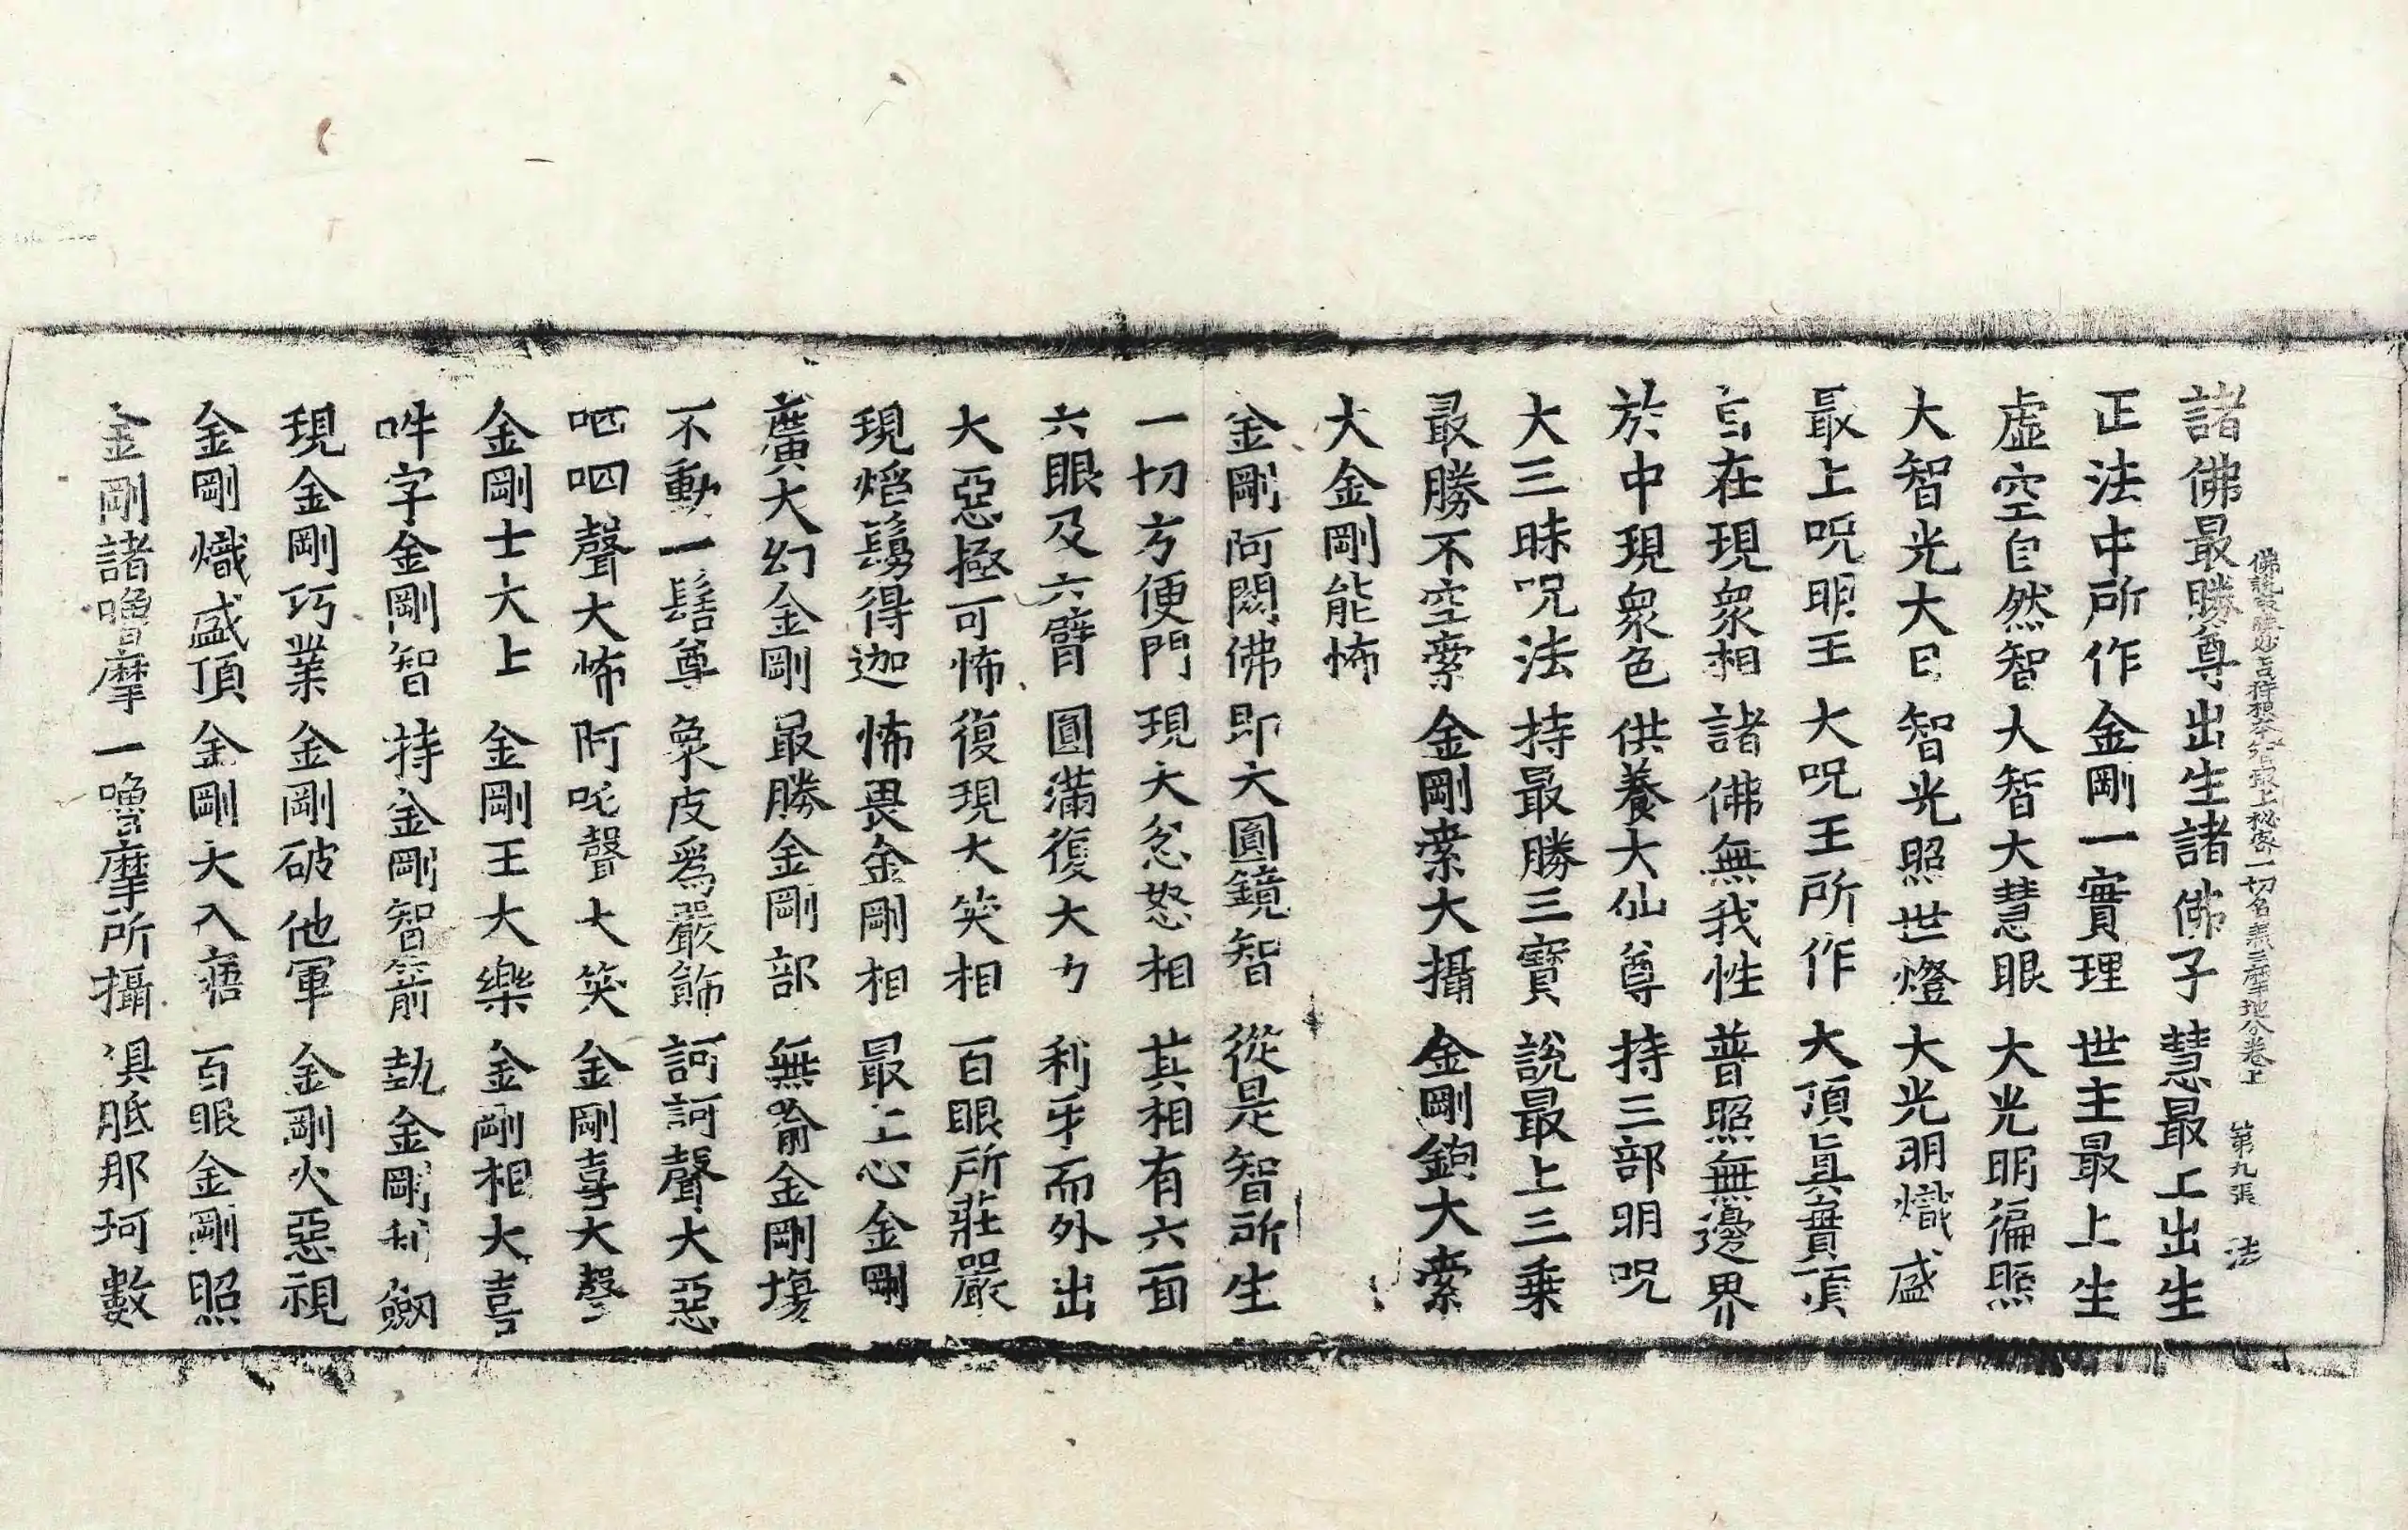 佛說最勝妙吉祥根本智最上秘密一切名義三摩地分卷上 第九張 法
諸佛最勝尊 出生諸佛子 慧最上出生
正法中所作 金剛一實理 世主最上生
虛空自然智 大智大慧眼 大光明徧照
大智光大日 智光照世燈 大光明熾盛
最上呪明王 大呪王所作 大頂眞實頂
言在現衆相 諸佛無我性 普照無邊界
於中現衆色 供養大仙尊 持三部明呪
大三昧呪法 持最勝三寶 說最上三乗
最勝不空索 金剛索大攝 金剛鉤大索
大金剛能怖
金剛阿閦佛 即大圓鏡智 從是智所生
一切方便門 現大忿怒相 其相有六面
六眼及六臂 圓滿復大力 利牙而外出
大惡極可怖 復現大笑相 百眼所莊嚴
現熖鬘得迦 怖畏金剛相 最上心金剛
廣大幻金剛 最勝金剛部 無喻金剛場
不動一髻尊 象皮爲嚴飾 訶訶聲大惡
呬呬聲大怖 阿吒聲大笑 金剛喜大聲
金剛士大上 金剛王大樂 金剛相大喜
吽字金剛智 持金剛智箭 執金剛利劔
現金剛巧業 金剛破他軍 金剛火惡視
金剛熾盛頂 金剛大入寤 百眼金剛照
金剛諸嚕摩 一嚕摩所攝 俱胝那珂數